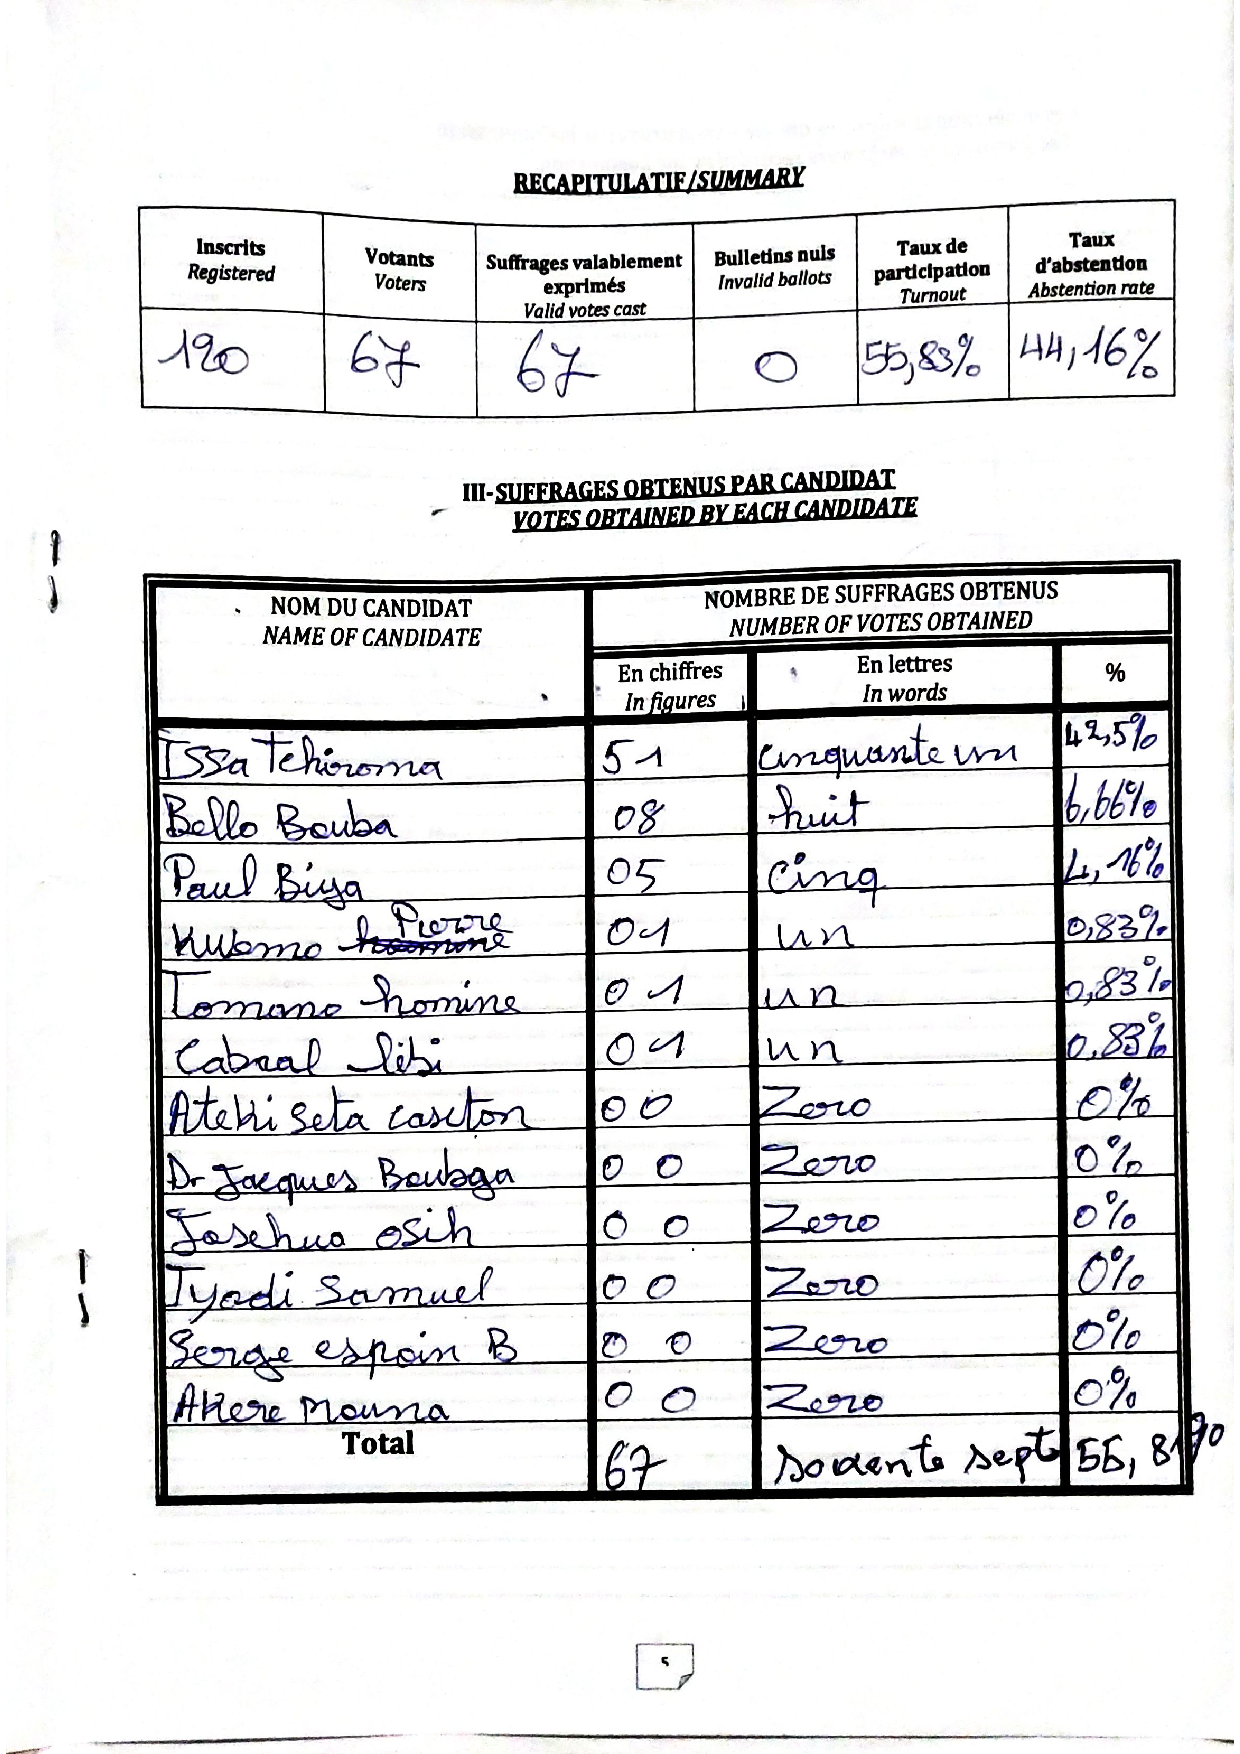 RECAPITULATIF/SUMMARY
Inscrits
Registered
Votants
Voters
Suffrages valablement
exprimés
Valid votes cast
Bulletins nuls
Invalid ballots
Taux de
participation
Turnout
Taux
d'abstention
Abstention rate
120 67 67 0 55,83% 44,16%
III-SUFFRAGES OBTENUS PAR CANDIDAT
VOTES OBTAINED BY EACH CANDIDATE
NOM DU CANDIDAT
NAME OF CANDIDATE
NOMBRE DE SUFFRAGES OBTENUS
NUMBER OF VOTES OBTAINED
En chiffres
In figures
En lettres
In words
%
Issa Tchiroma 51 cinquante un 42,5%
Bello Bouba 08 huit 6,66%
Paul Biya 05 cinq 4,16%
Kwemo Pierre 01 un 0,83%
Tomaino homine 01 un 0,83%
Cabraal libi 01 un 0,83%
Ateki Seta caxton 00 Zero 0%
Dr Jacques Bouboga 00 Zero 0%
Josehua osih 00 Zero 0%
Iyodi Samuel 00 Zero 0%
Serge espoin B 00 Zero 0%
Akere Mouna 00 Zero 0%
Total 67 soixante sept 55,8
5